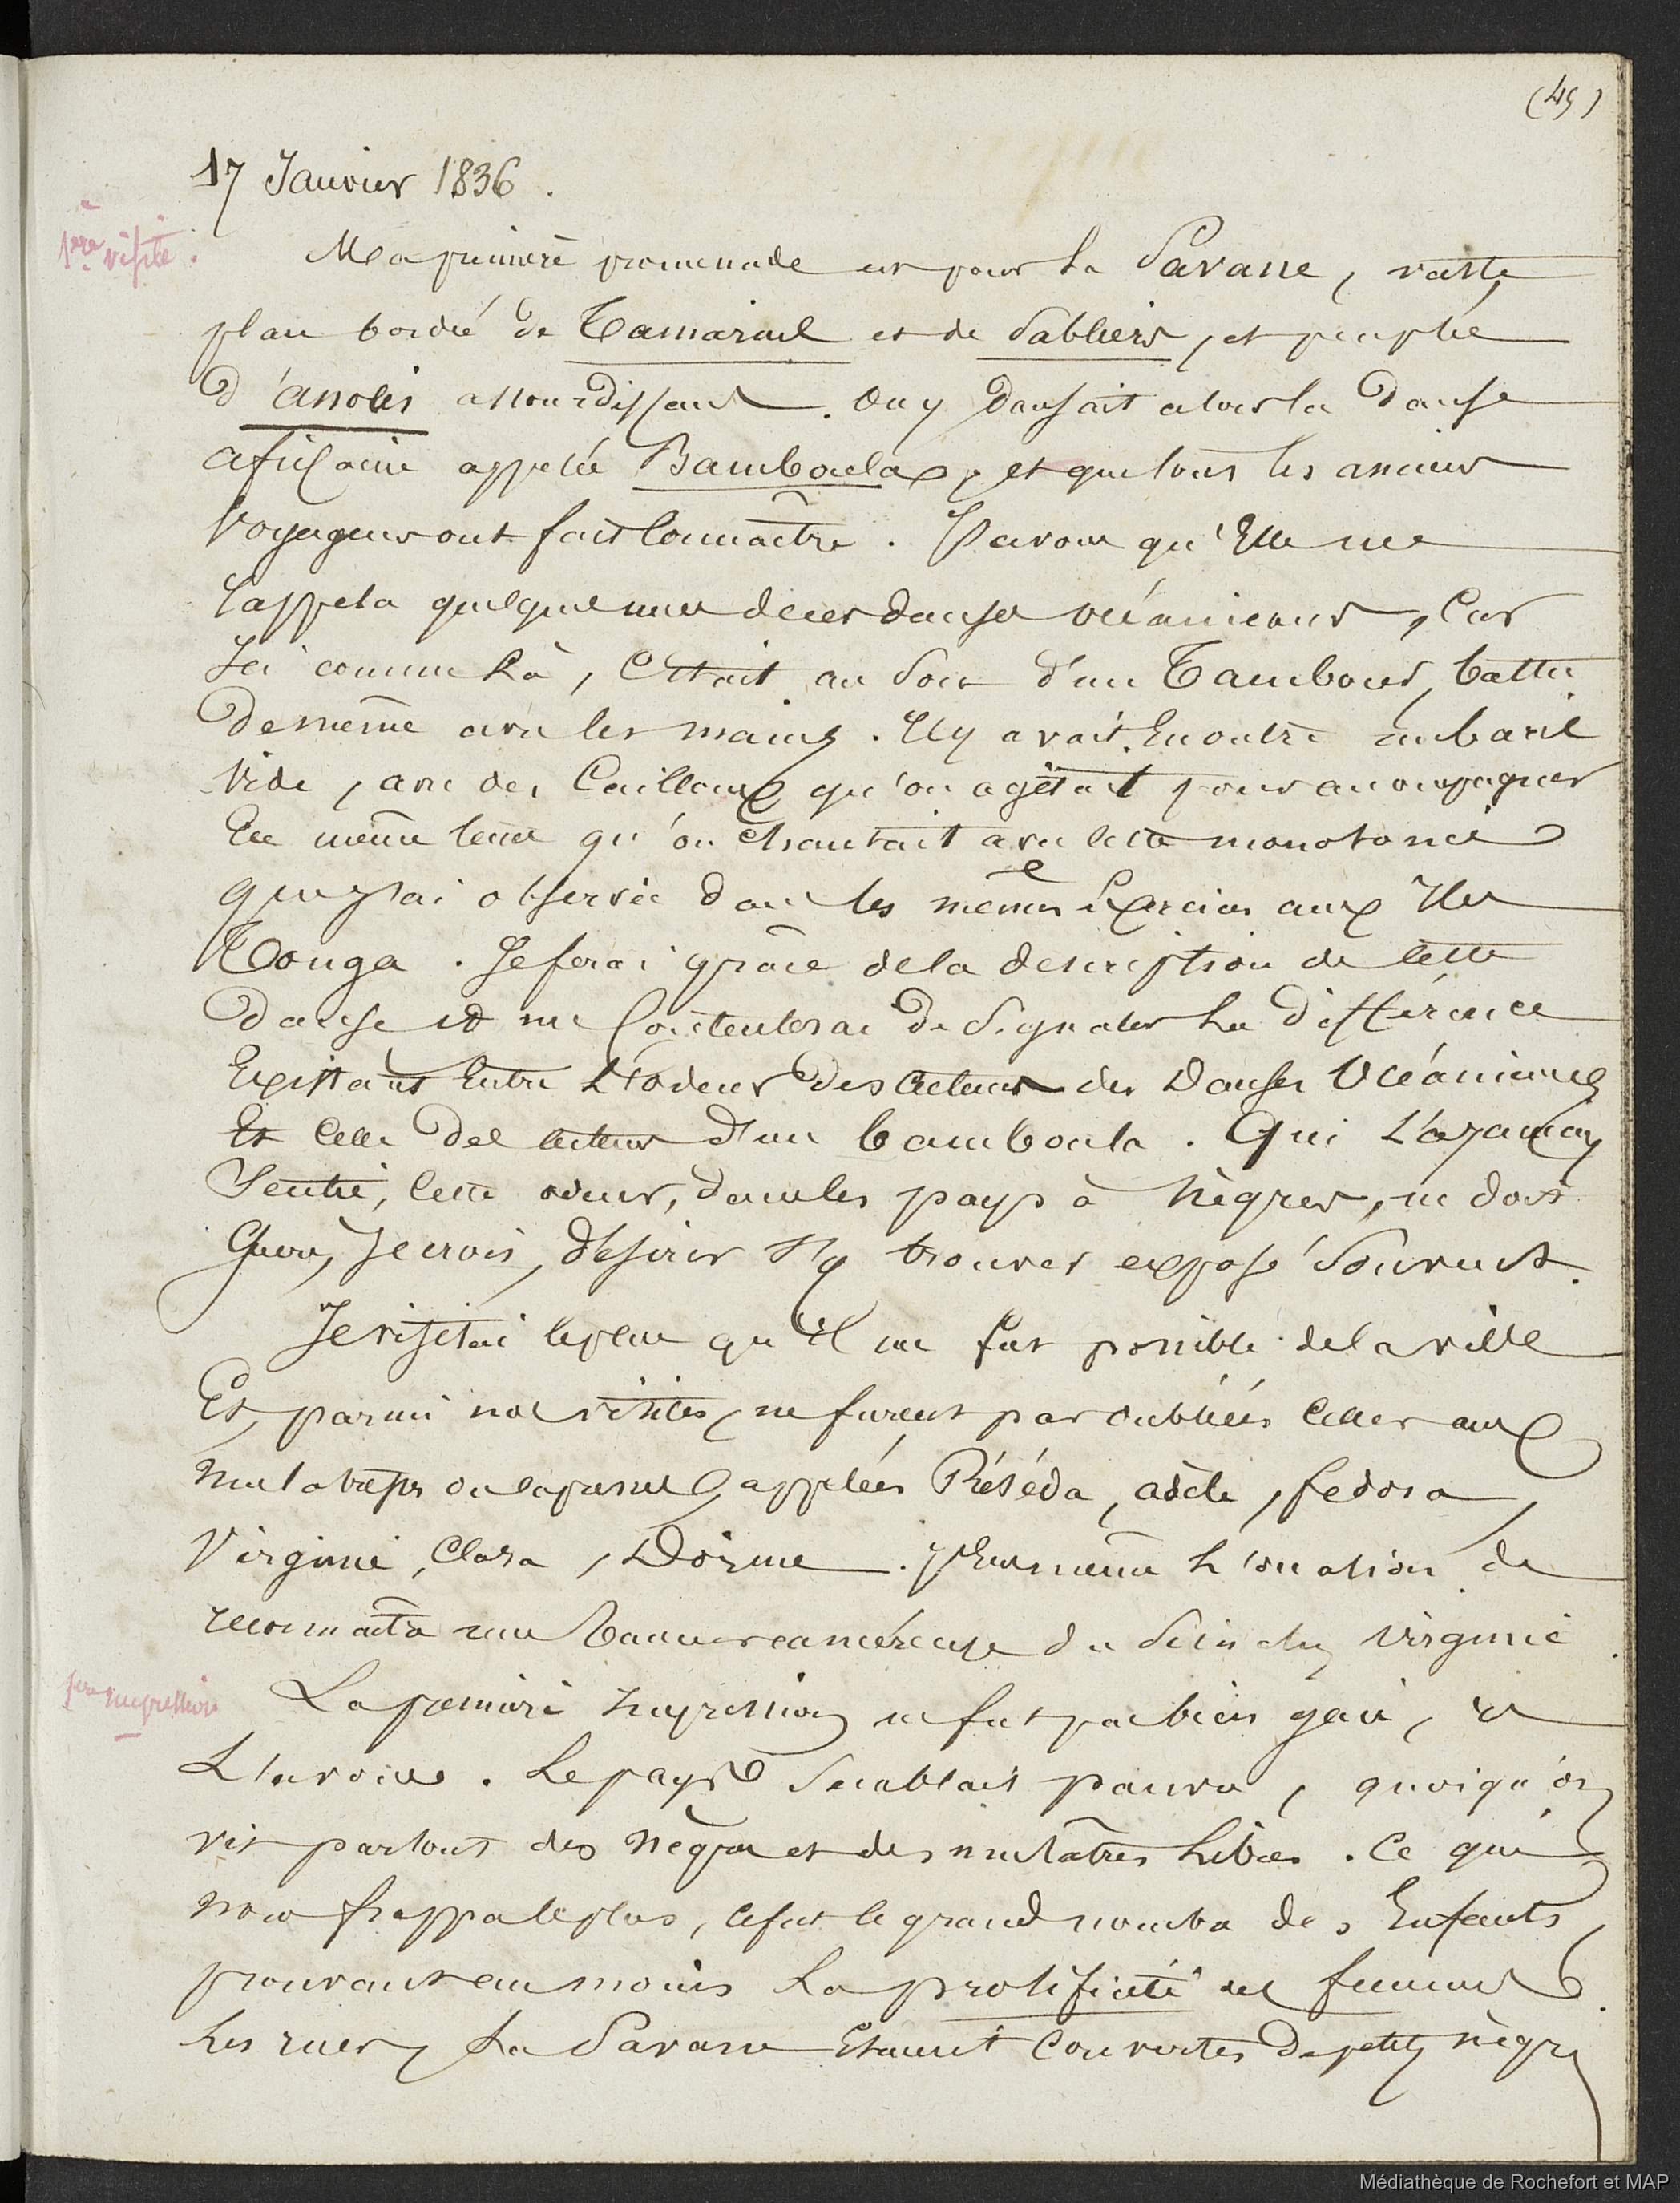 (49)
17 Janvier 1836.
1ère visite.
Ma première promenade est pour la Savane, vaste
plan bordé de Tamarins et de Sabliers, et peuplé
d'anolis assourdissans. On y dansait alors la danse
africaine appelée Bamboula, et que tous les anciens
voyageurs ont fait connaître. J'avoue qu'Elle me
rappela quelques unes de ces danses océaniennes, Car
Ici comme là, C'était au Son d'un Tambour, battu
de même avec les mains. Il y avait En outre un baril
vide, avec des Cailloux qu'on agitait pour accompagner
En même tems qu'on chantait avec cette monotonie
que j'ai observée dans les mêmes Exercices aux Iles
Tonga. Je ferai grâce de la description de cette
danse et me Contenterai de Signaler la différence
Existant Entre L'odeur des acteurs des Danses Océaniennes
Et Celle des acteurs d'un bamboula. Qui L'a jamais
Sentie, cette odeur, dans les pays à Nègres, ne doit
Guère, Je crois, désirer s'y trouver exposé Souvent.
Je visitai le plus qu'il me fut possible de la ville
Et, parmi nos visites, ne furent pas oubliées Celles aux
mulatresses appelées Réséda, adèle, fedora,
Virginie, Clara, Dorine. J'Eus même L'occasion de
reconnaitre une cancéreuse du Sein chez Virginie.
1ère impression
La première Impression ne fut pas bien gaie, je
L'avoue. Le pays Semblait pauvre, quoiqu'on
vit partout des nègres et des mulâtres Libres. Ce qui
nous frappa le plus, ce fut le grand nombre des Enfants,
prouvant au moins La prolificité des femmes.
Les rues, La Savane Etaient Couvertes de petits nègres
Médiathèque de Rochefort et MAP